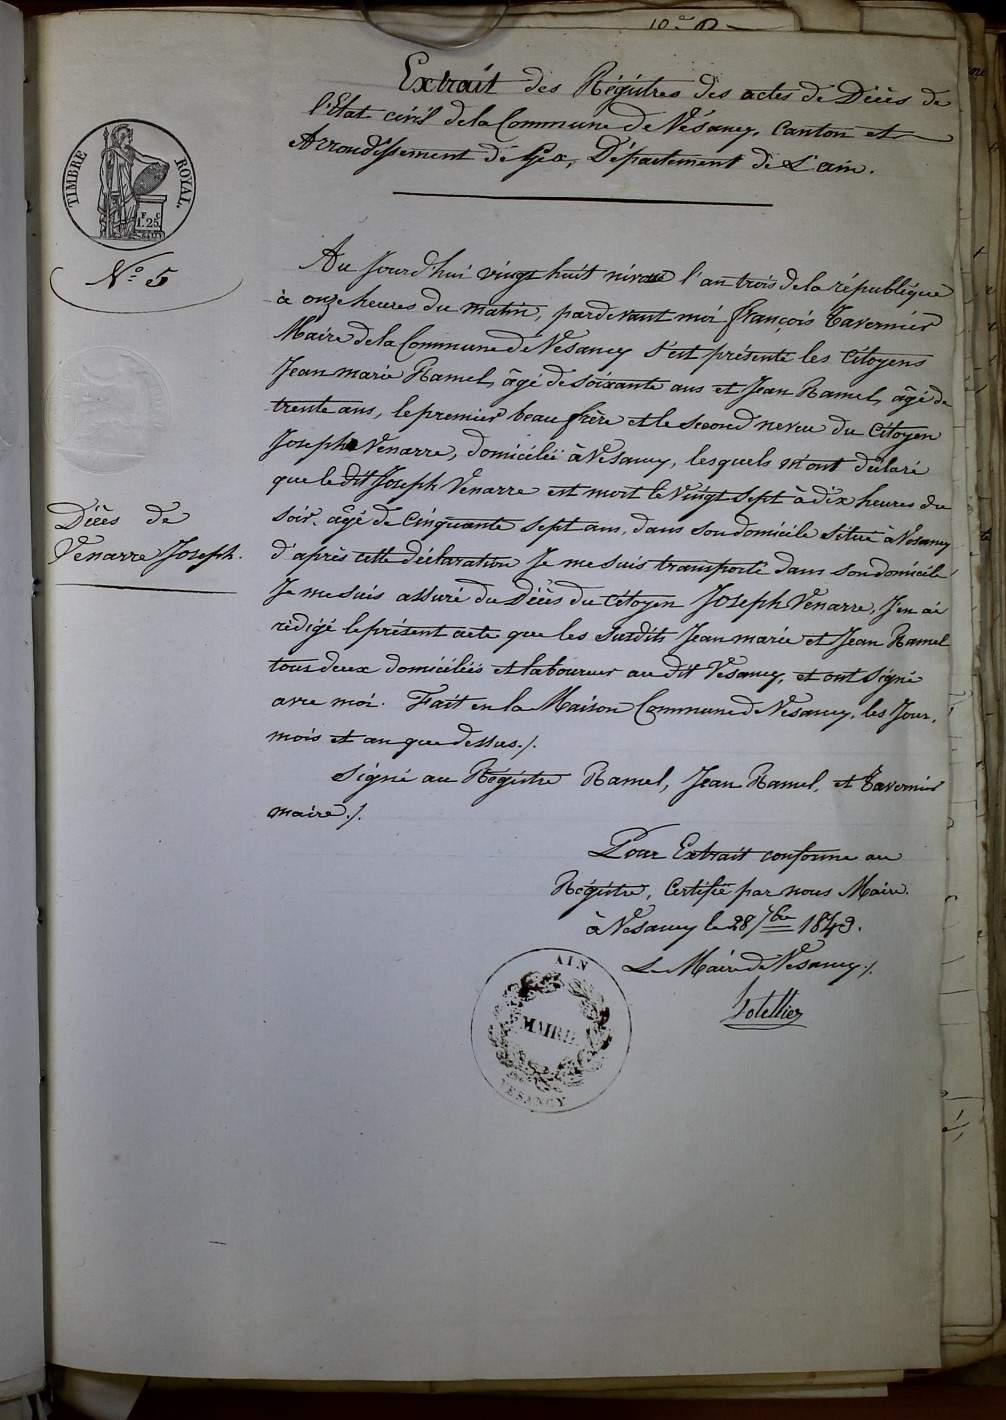 Extrait des Régistres des actes de Décès de
l'Etat civil de la Commune de Vésancy, Canton et
Arrondissement de Gex, Département de L'ain.
TIMBRE ROYAL.
F C
1.25
N.o 5
Au Jourd'hui vingt huit nivose l'an trois de la république
à onze heures du matin, pardevant moi françois Tavernier
Maire de la Commune de Vesancy s'est présenté les Citoyens
Jean marie Ramel, âgé de soixante ans et Jean Ramel, âgé de
trente ans, le premier beau frère et le second neveu du Citoyen
Joseph Venarre, domicilié à Vesancy, lesquels m'ont déclaré
que le dit Joseph Venarre est mort le vingt sept à dix heures du
soir, âgé de cinquante sept ans, dans son domicile situé à Vesancy
d'après cette déclaration Je me suis transporté dans son domicile
Décès de
Venarre Joseph.
Je me suis assuré du Décès du citoyen Joseph Venarre, J'en ai
rédigé le présent acte que les susdits Jean marie et Jean Ramel
tous deux domiciliés et laboureur au dit Vesancy, et ont signé
avec moi. Fait en la Maison Commune de Vesancy, les Jour,
mois et an que dessus./.
Signé au Régistre Ramel, Jean Ramel, et Tavernier
maire./.
Pour Extrait conforme au
Régistre, Certifié par nous Maire.
à Vesancy le 28 7bre 1843.
Le Maire de Vesancy./.
AIN
MAIRIE
VESANCY